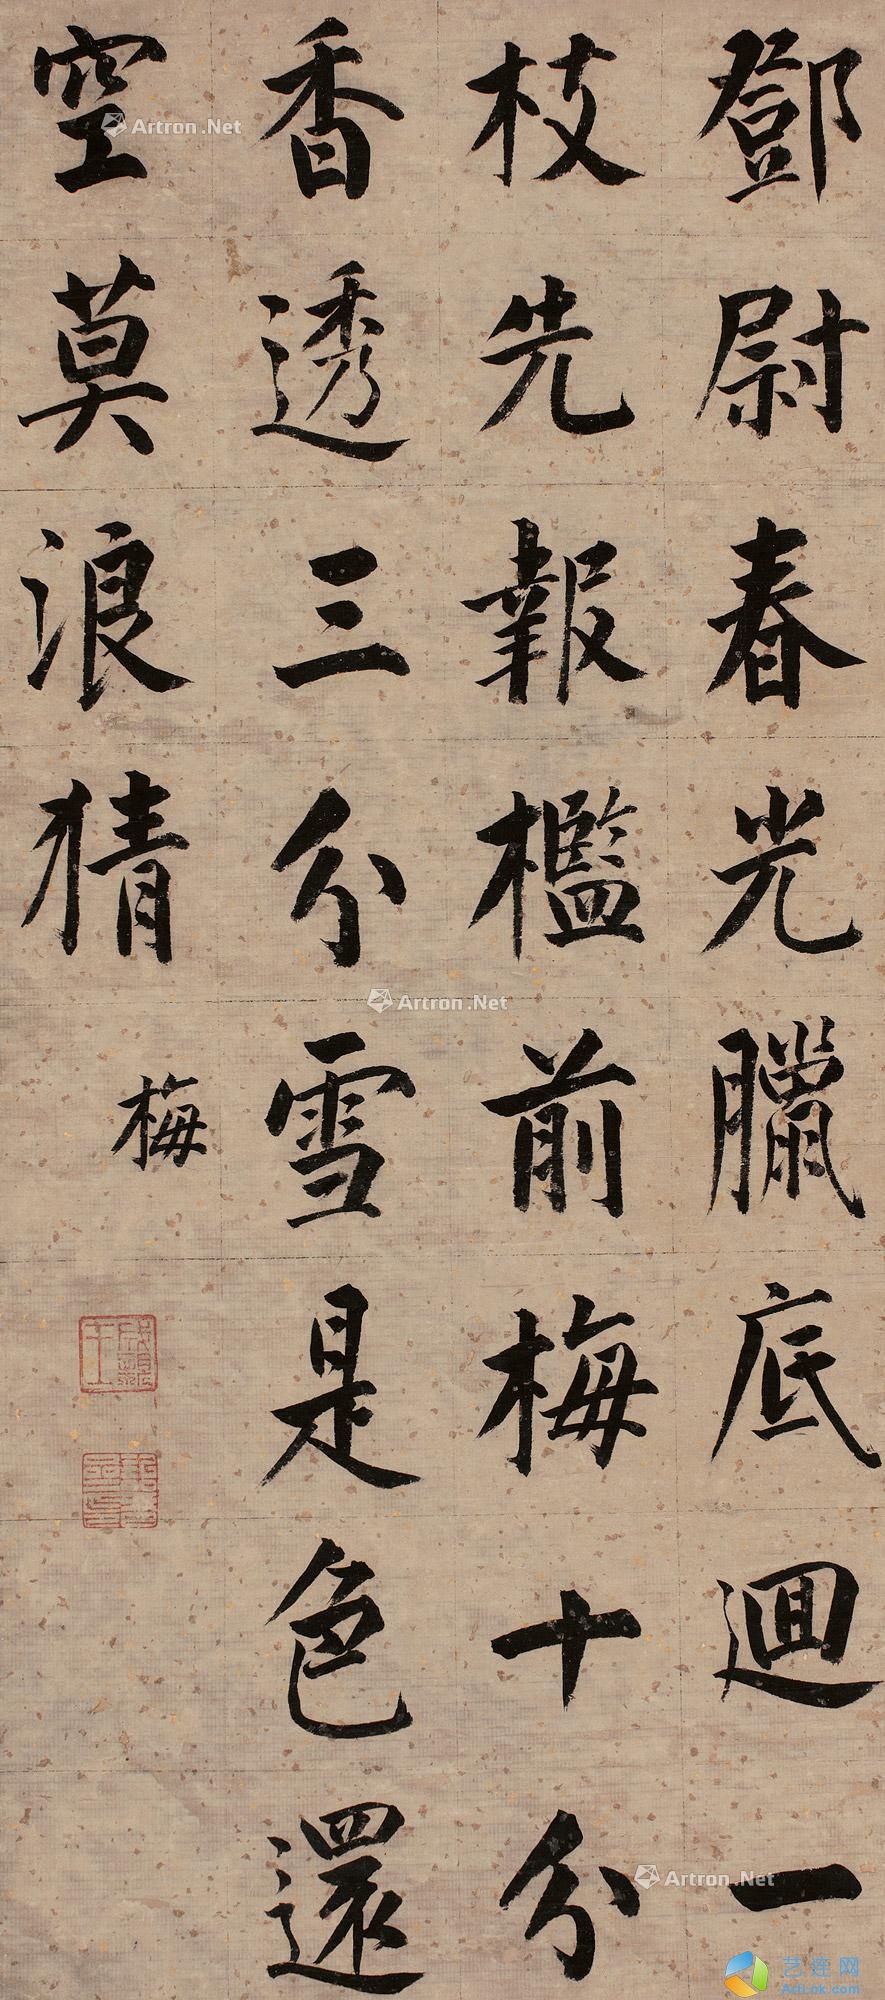 鄧尉春光臘底迴一
枝先報檻前梅十分
香透三分雪是色還
空莫浪猜
梅
成親王
Artron.Net
Artron.Net
Artron.Net
艺连网
ArtLok.com